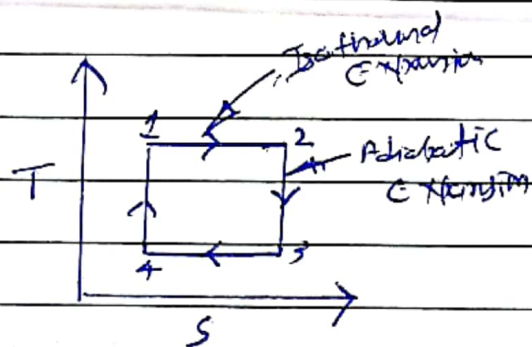 Isothermal
Expansion
1
2
Adiabatic
Expansion
T
4
3
S